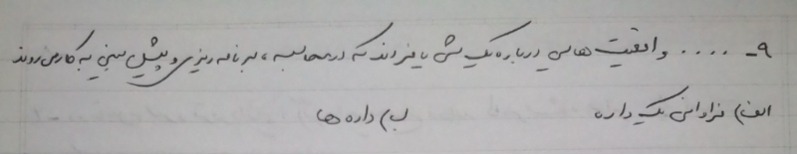 ۹- .... واقعیت هایی درباره یک شی یا فرد اند که در محاسبه، برنامه ریزی و پیش بینی به کار می روند
الف) فراوانی یک داده    ب) داده ها